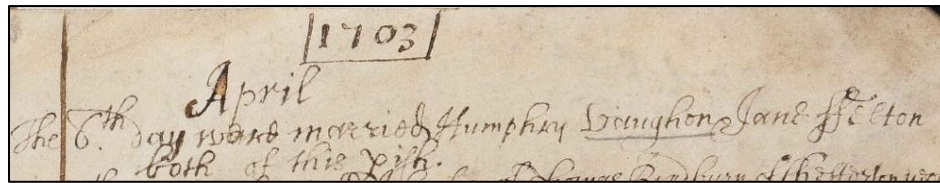 1703
April
The 6th day were married Humphry Vaughon & Jane ffelton
both of this pish.